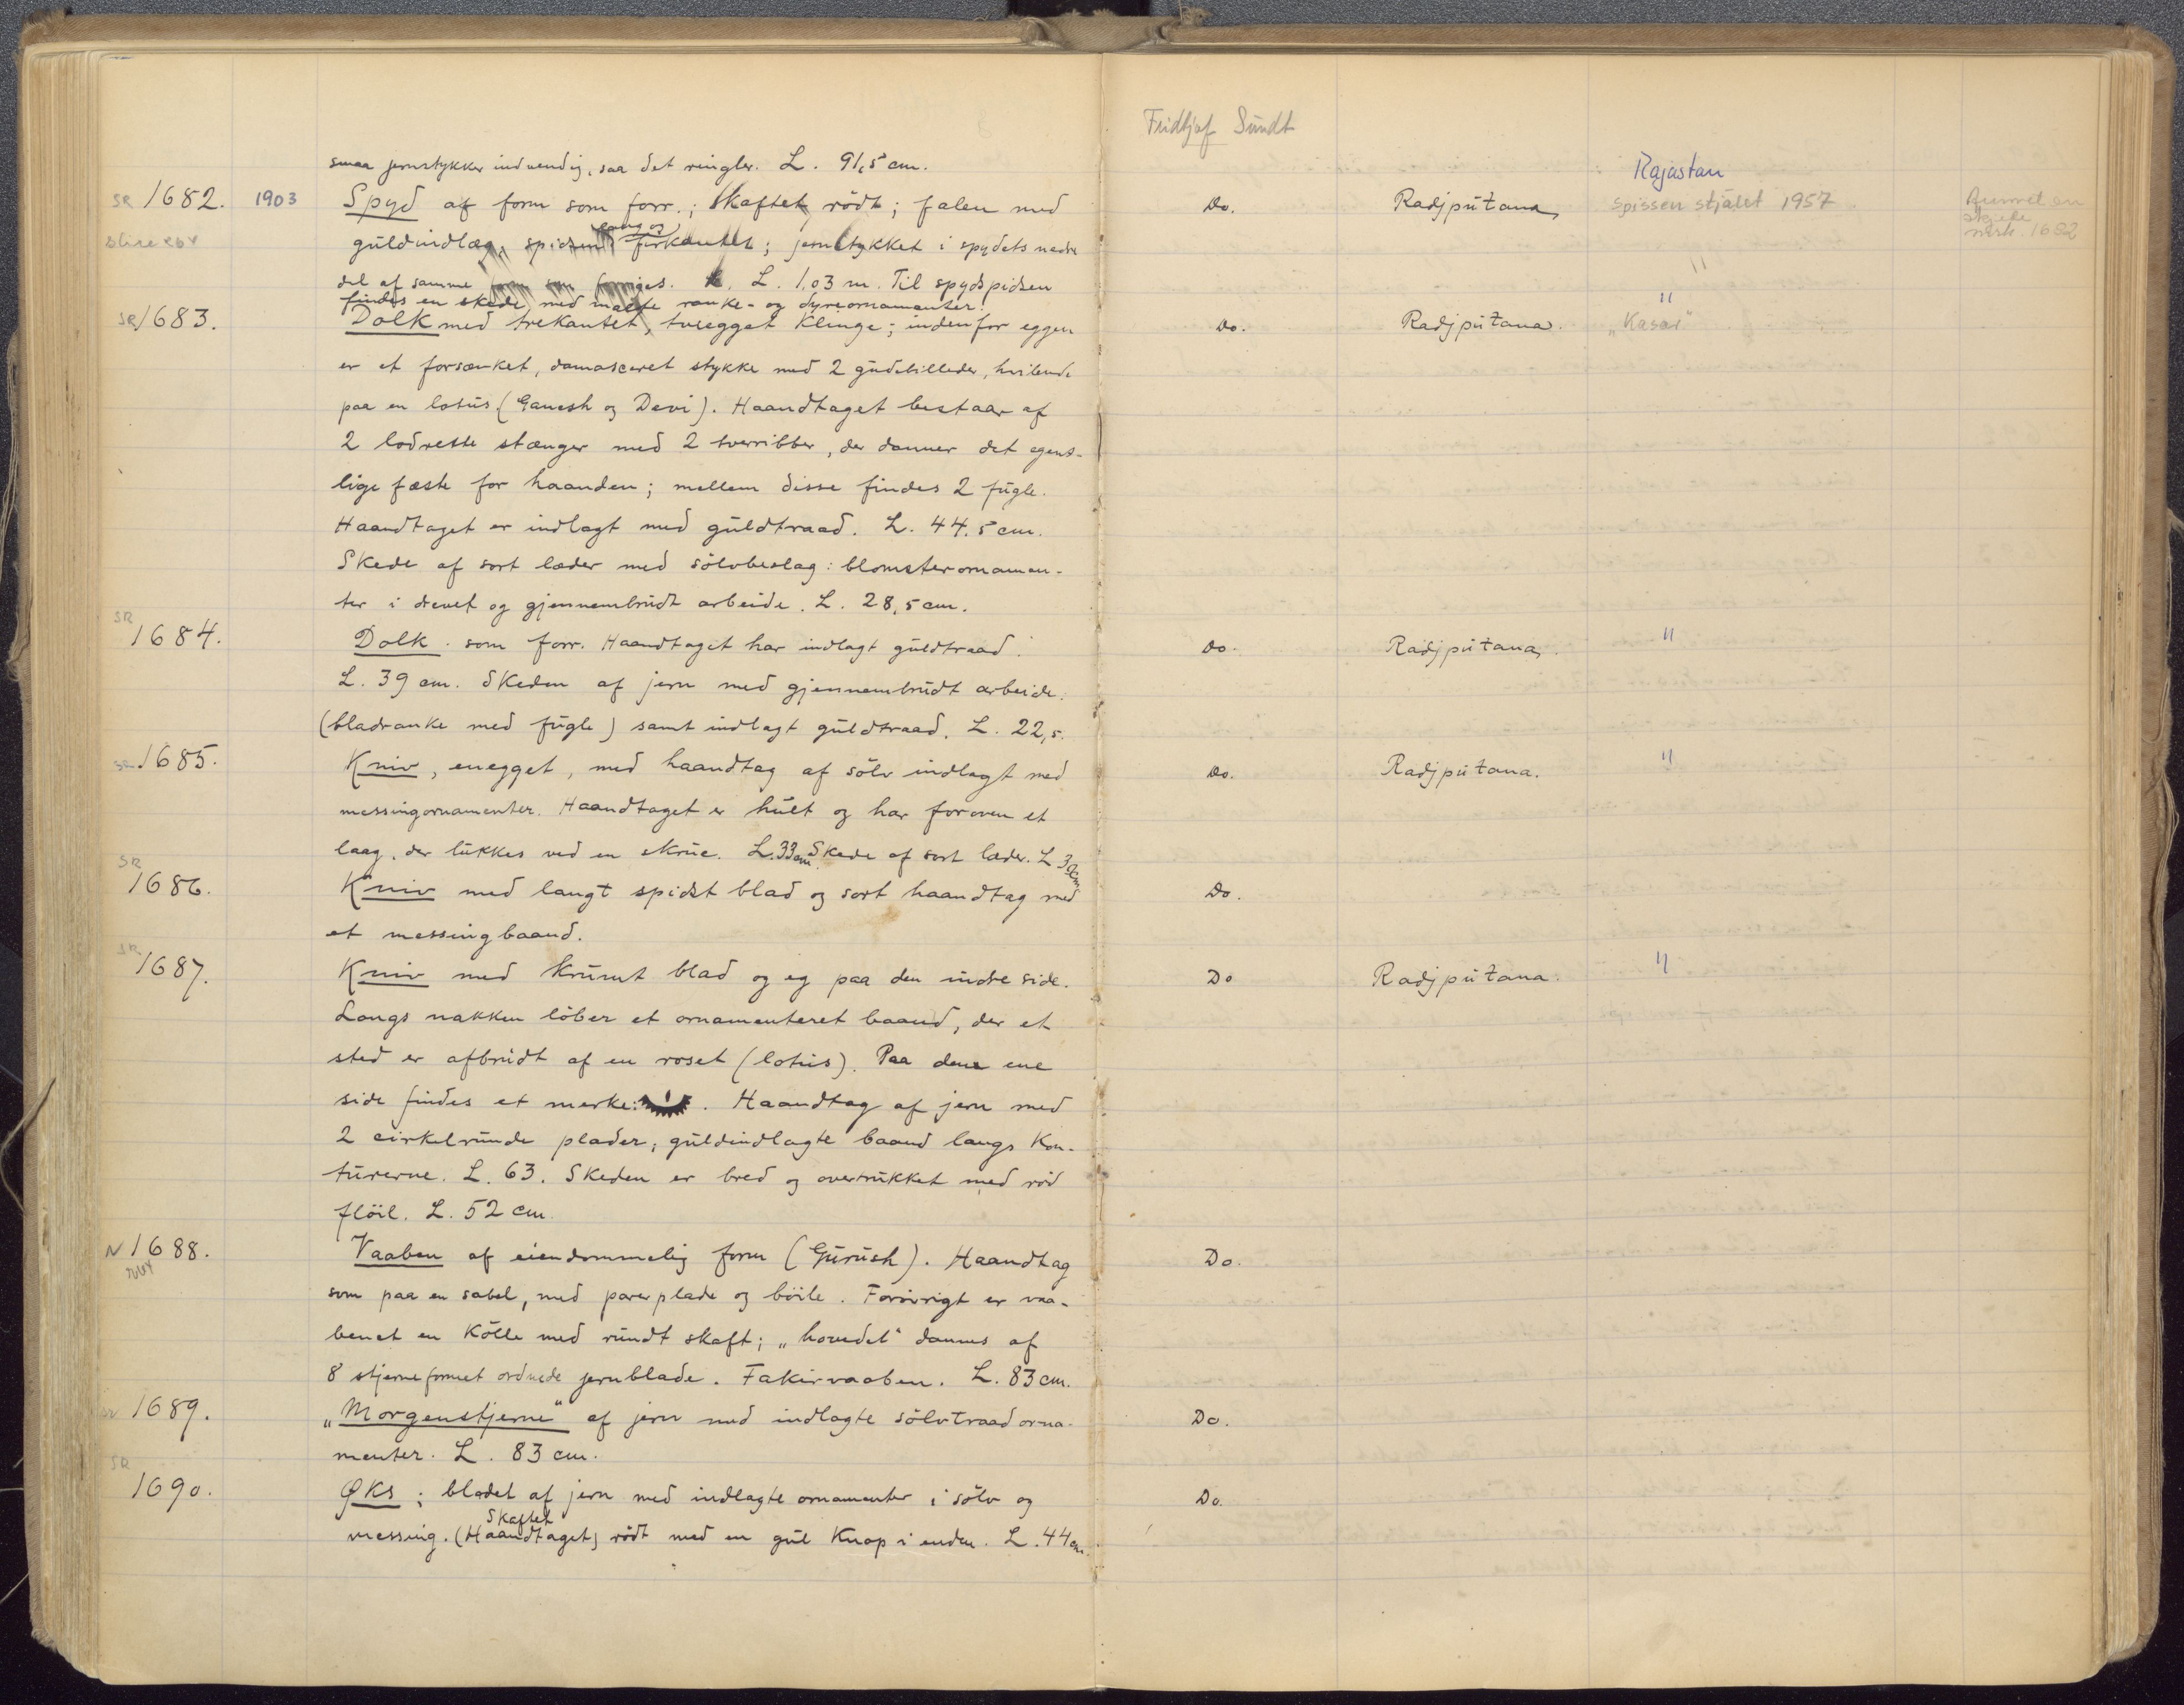 Fridtjof Sundt
smaa jernstykker indvendig, saa det ringler. L. 91,5 cm.
Rajastan
SR 1682. 1903 Spyd af form som forr.; Skaftet rödt; falen med Do. Radjputana, spissen stjålet 1957
slire
lang og
guldindlæg, spidsen firkantet; jernstykket i spydets nedre
skjede
merk. 1682
del af samme form som forriges. L. 1,03 m. Til spydspidsen
findes en skede med malte ranke- og dyreornamenter. "
SR 1683. Dolk med trekantet, tveegget Klinge; indenfor eggen Do. Radjputana. „Kasar"
er et forsænket, damasceret stykke med 2 gudebilleder, hvilende
paa en lotus (Ganesh og Devi). Haandtaget bestaar af
2 lodrette stænger med 2 tverribber, der danner det egent-
lige fæste for haanden; mellem disse findes 2 fugle.
Haandtaget er indlagt med guldtraad. L. 44.5 cm.
Skede af sort læder med sölvbeslag: blomsterornamen-
ter i drevet og gjennembrudt arbeide. L. 28,5 cm.
SR
1684. Dolk som forr. Haandtaget har indlagt guldtraad. Do. Radjputana, "
L. 39 cm. Skeden af jern med gjennembrudt arbeide.
(bladranke med fugle) samt indlagt guldtraad. L. 22,5.
SR 1685. Kniv, enegget, med haandtag af sölv indlagt med Do. Radjputana. "
messingornamenter. Haandtaget er hult og har foroven et
laag, der lukkes ved en skrue. L. 33 cm Skede af sort læder. L
SR
1686. Kniv med langt spidst blad og sort haandtag med Do.
et messingbaand.
SR
1687. Kniv med krumt blad og eg paa den indre side. Do Radjputana. "
Langs nakken löber et ornamenteret baand, der et
sted er afbrudt af en roset (lotus). Paa den ene
side findes et merke: . Haandtag af jern med
2 cirkelrunde plader; guldindlagte baand langs Kon-
turerne. L. 63. Skeden er bred og overtrukket med röd
flöil. L. 52 cm.
N 1688. Vaaben af eiendommelig form (Gurush). Haandtag Do.
som paa en sabel, med parerplade og böile. Forövrigt er vaa-
benet en Kölle med rundt skaft; „hovedet" dannes af
8 stjerneformet ordnede jernblade. Fakirvaaben. L. 83 cm.
SR 1689. „Morgenstjerne" af jern med indlagte sölvtraadorna- Do.
menter. L. 83 cm.
SR
1690. Øks; bladet af jern med indlagte ornamenter i sölv og Do.
Skaftet
messing. (Haandtaget) rödt med en gul Knop i enden. L. 44 cm.